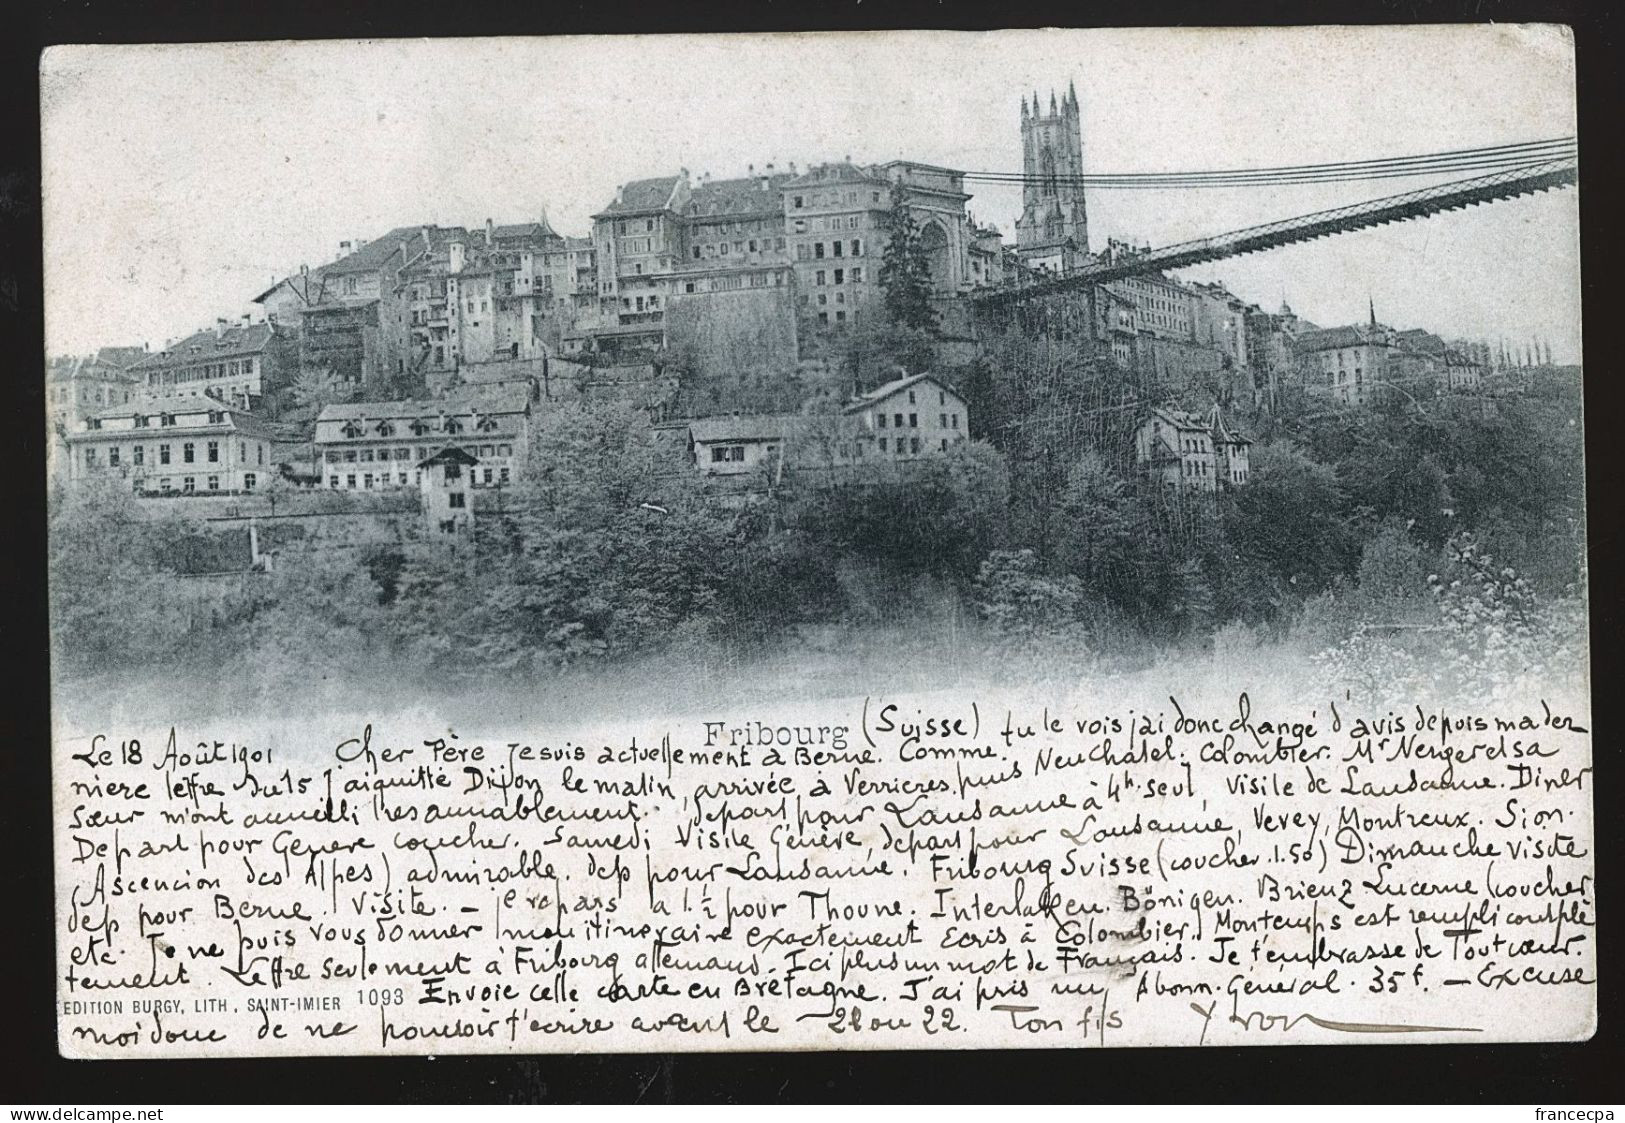 Fribourg (Suisse) tu le vois j'ai donc changé d'avis depuis ma der
Le 18 Août 1901 Cher Père je suis actuellement à Berne. Comme.
niere lettre du 15 J'ai quitté Dijon le matin, arrivée à Verrieres, puis Neuchatel. Colombier. Mr Nerger et sa
Sœur m'ont accueilli raisonnablement. depart pour Lausanne à 4h. seul, Visite de Lausanne. Diner
Depart pour Geneve coucher. Samedi Visite Genève, depart pour Lausanne, Vevey, Montreux. Sion.
(Ascencion des Alpes) admirable. dep pour Lausanne. Fribourg Suisse (coucher. 1.50) Dimanche visite
dep pour Berne. Visite. _ je repars a 1.½ pour Thoune. Interlaken. Bönigen. Brienz Lucerne (coucher
etc. Je ne puis vous donner mon itineraire exactement Ecris à Colombier. Mon temps est rempli complè
tement. Lettre seulement à Fribourg allemand. Ici plus un mot de Français. Je t'embrasse de Tout cœur.
EDITION BURGY, LITH, SAINT-IMIER 1093 Envoie cette carte en Bretagne. J'ai pris un Abonn. Général. 35 f. — Excuse
moi donc de ne pouvoir t'ecrire avant le 21 ou 22. Ton fils Yvon
francecpa